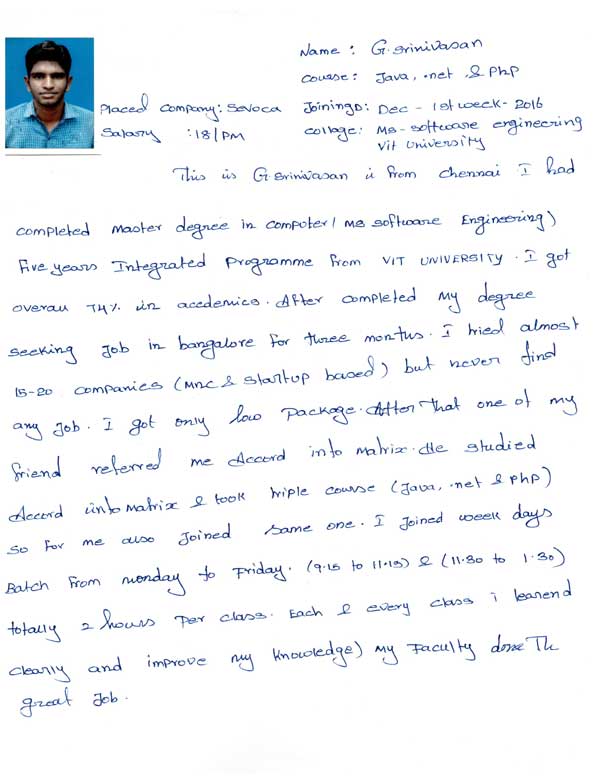 Name : G. Srinivasan
Course : Java, .net, & PhP
Placed Company : Sevoca Joinings : Dec - 1st week - 2016
Salary : 18/PM College : MS - Software engineering
Vit University
This is G. Srinivasan is from chennai I had
completed Master degree in computer ( MS Software Engineering)
five years Integrated Programme from VIT UNIVERSITY. I got
overall 74% in acedemics. After completed my degree
seeking Job in bangalore for three months. I tried almost
15-20 companies (MNC & startup based) but never find
any Job. I got only low Package. After That one of my
friend referred me Accord info matrix. He studied
Accord info matrix & took triple course (Java, .net & PhP)
so for me also joined same one. I joined week days
Batch from monday to Friday. (9.15 to 11.15) & (11.30 to 1.30)
totally 2 hours Per class. Each & every class i leanend
clearly and improve my knowledge) my Faculty done The
great Job.